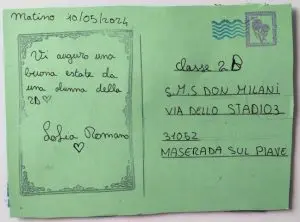 Matino 10/05/2024
Vi auguro una
buona estate da
una alunna della
2D♡
Sofia Romano
♡
classe 2D
S.M.S DON MILANI
VIA DELLO STADIO 3
31052
MASERADA SUL PIAVE